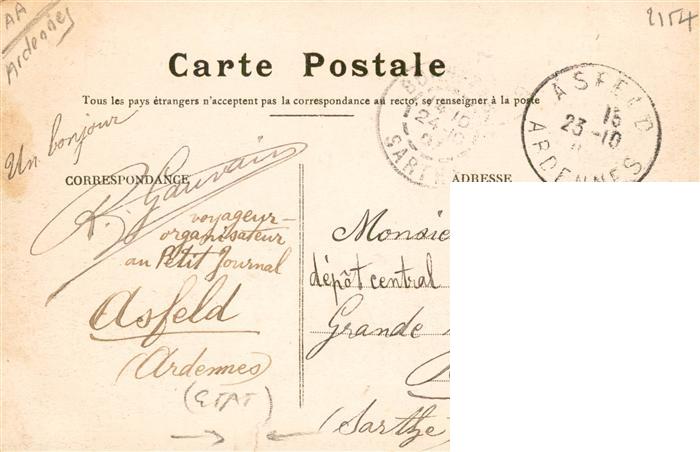 AA
Ardennes
2154
Carte Postale
Tous les pays étrangers n'acceptent pas la correspondance au recto, se renseigner à la poste
ASFELD
15
23-10
ARDENNES
24-10
SARTHE
Un bonjour
CORRESPONDANCE
ADRESSE
Gauvain
voyageur-
organisateur
au Petit Journal
Asfeld
(Ardennes)
(ETAT)
Monsie
dépôt central
Grande
(Sarthe